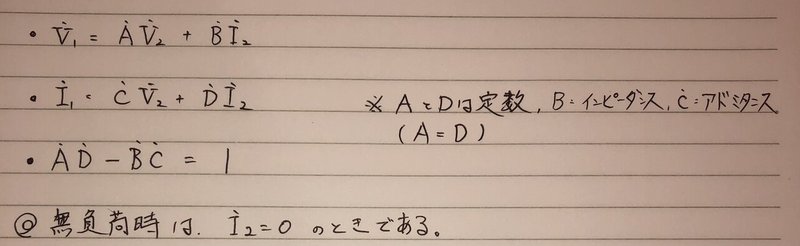 • V̇₁ = ȦV̇₂ + Ḃİ₂
• İ₁ = ĊV̇₂ + Ḋİ₂
※ AとDは定数, B=インピーダンス, Ċ:アドミタンス
(A = D)
• ȦḊ − ḂĊ = 1
◎ 無負荷時は, İ₂=0 のときである。